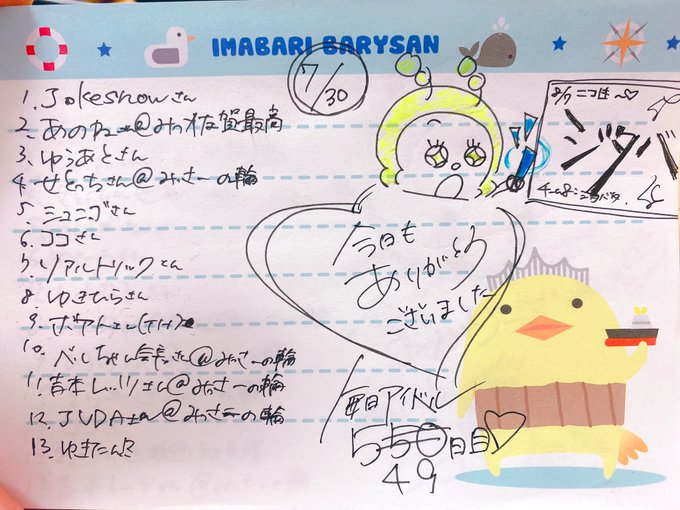 IMABARI BARYSAN
7/30
1. Jokesnowさん
2. あのねーさん@みっけ佐賀最高
3. ゆうあとさん
4. せとっちさん@みっさーの輪
5. ミュニゴさん
6. ココさん
7. リアルトリックさん
8. ゆきひらさん
9.
10. べしちゃん会長さん@みっさーの輪
11. 吉本しっいさん@みっさーの輪
12. JUDAさん@みっさーの輪
13. ゆきたん!?
8/7 ニコ生〜♡
ジタバ
今日も
ありがとう
ございました
毎日アイドル
550日目♡
49